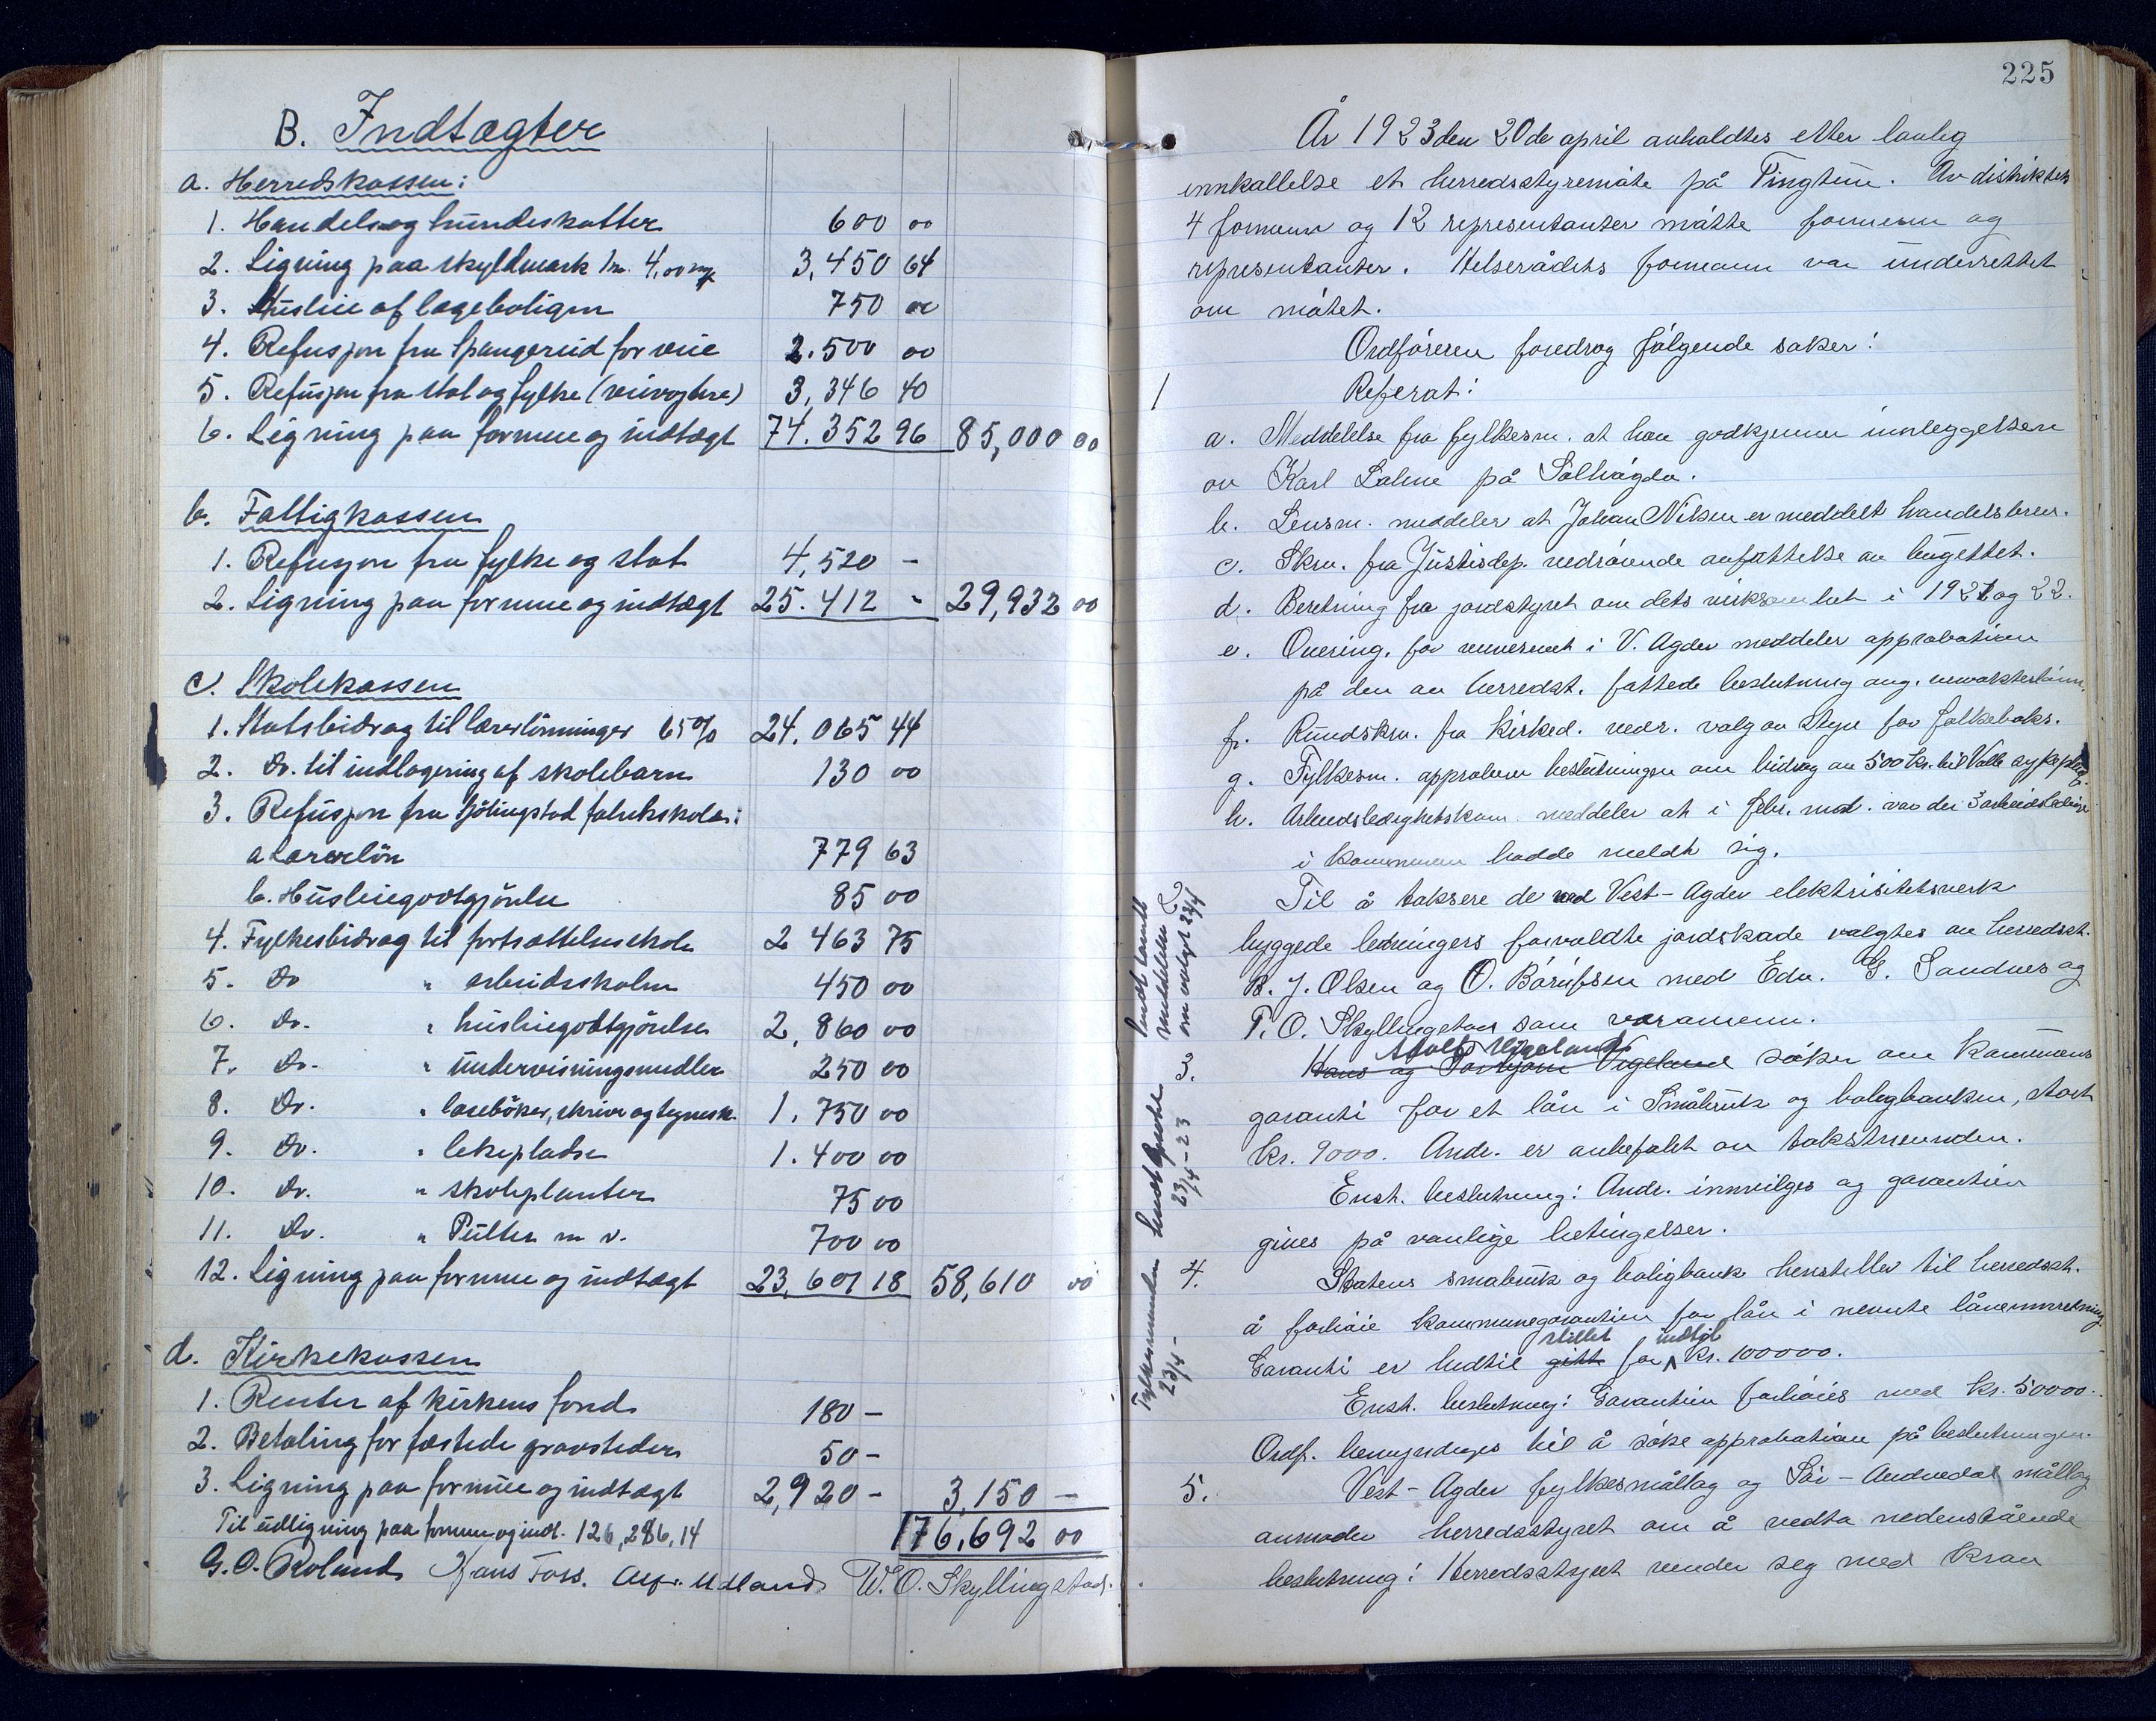 B. Indtægter
a. Herredskassen:
1. Handels og hundeskatter 600 00
2. Ligning paa skyldmark 4,00 3,450 64
3. Husleie af lægeboligen 750 00
4. Refusjon fra Spangereid for veie 2.500 00
5. Refusjon fra stat og fylke (veivogtere) 3,346 40
6. Ligning paa formue og indtægt 74.352 96 85,000 00
b. Fattigkassen
1. Refusjon fra fylke og stat 4,520 -
2. Ligning paa formue og indtægt 25.412 - 29,932 00
c. Skolekassen
1. Statsbidrag til lærerlönninger 65% 24.065 44
2. Do. til indlogering af skolebarn 130 00
3. Refusjon fra Fjölingstad fabrikskole:
a Lærerlön 779 63
b. Husleiegodtgjörelse 85 00
4. Fylkesbidrag til fortsættelsesskole 2 463 75
5. Do " arbeidsskolen 450 00
6. Do. " husleiegodtgjörelse 2,860 00
7. Do. " undervisningsmidler 250 00
8. Do. " læsebøker, skrive og tegnesk. 1.750 00
9. Do. " lekepladse 1.400 00
10. Do. " skoleplanter 75 00
11. Do. " Pulter m v. 700 00
12. Ligning paa formue og indtægt 23,601 18 58,610 00
d. Kirkekassen
1. Renter af kirkens fond 180 -
2. Betaling for fæstede gravsteder 50 -
3. Ligning paa formue og indtægt 2,920 - 3,150 -
Til udligning paa formue og indt. 126,286,14 176,692 00
G. O. Roland Hans Foss. Alfr. Udland W. O. Skyllingstad.
225
År 1923 den 20de april avholdtes etter lovleg
innkallelse et herredsstyremöte på Tingtun. Av distriktets
4 formenn og 12 representanter mötte formenn og
representanter. Helserådets formann var underrettet
om mötet.
Ordföreren foredrog fölgende saker:
1 Referat:
a. Meddelelse fra fylkesm. at han godkjenner innleggelsen
av Karl Lohne på Solhögda.
b. Lensm. meddeler at Johan Nilsen er meddelt handelsbrev.
c. Skrv. fra Justisdep. vedrörende avfattelse av bugettet.
d. Beretning fra jordstyret om dets virksomhet i 1921 og 22.
e. Overing. for veivesenet i V. Agder meddeler approbation
på den av herredst. fattede beslutning ang.
f. Rundskrv. fra Kirked. vedr. valg av styre for folkeboks.
g. Fylkesm. approberer beslutningen om bidrag av 500 kr. til Valle sykepleie
h. Arbeidsledighetskom. meddeler at i febr. mnd. var der 3 arbeidsledige
i kommunen hadde meldt sig.
Til å taksere de ved Vest-Agder elektrisitetsverk
byggede ledningers forvoldte jordskade valgtes av herredsst.
B. J. Olsen og O. Bårdsen med Edv. G. Sandnes og
P. O. Skyllingstad som varamenn.
Adolf Vigeland
3. Hans og Torbjörn Vigeland söker om kommunens
garanti for et lån i Småbruk og boligbanken, stort
kr. 9000. Andr. er anbefalt av takstnevnden.
Enst. beslutning: Andr. innvilges og garantien
gives på vanlige betingelser.
4. Statens smabruk og boligbank henstiller til herredsst.
å forhöie kommunegarantien for lån i nevnte låneinnretning
stillet indtil
Garanti er hedtil gitt for kr. 100000.
Enst. beslutning: Garantien forhöies med kr. 50000.
Ordf. bemyndiges til å söke approbation på beslutningen.
5. Vest-Agder fylkesmållag og Sör-Audnedal mållag
anmoder herredsstyret om å vedta nedenstående
beslutning: Herredsstyret vender seg med krav
Sendt
meddelelse
om valget 23/4
Sendt
23/4-23
Fylkesmannen
23/4-